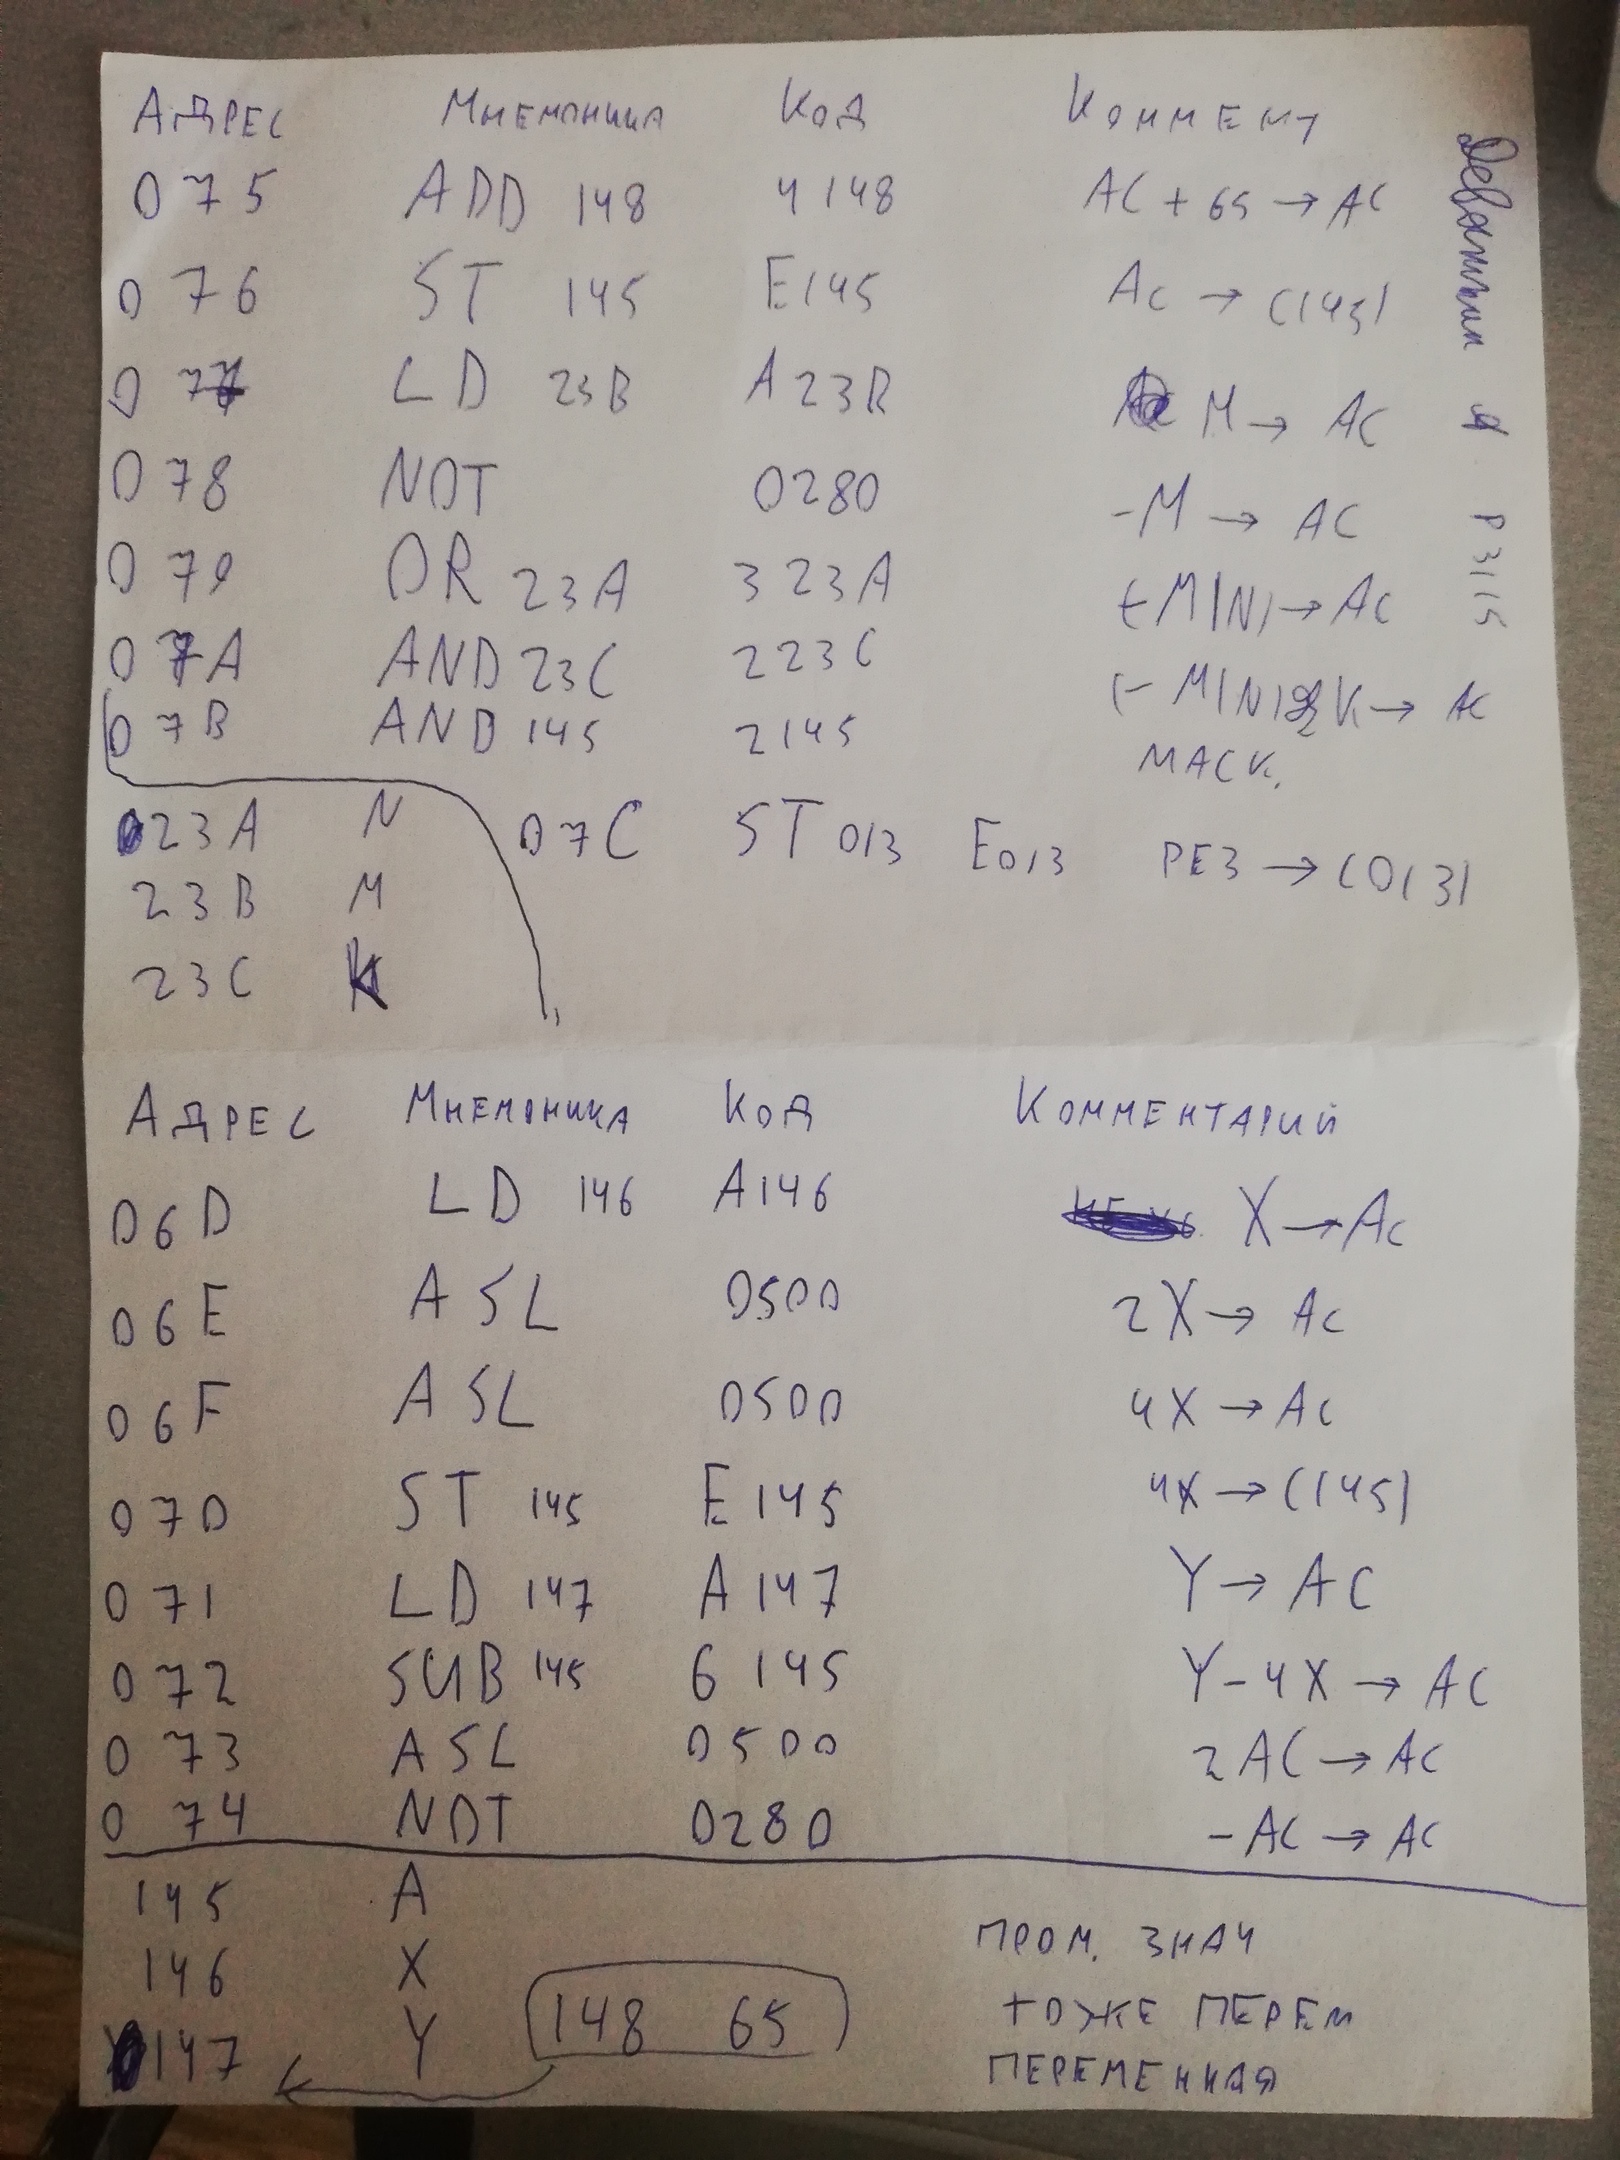 Адрес Мнемоника Код Коммент
075 ADD 148 4148 AC + 65 → AC
076 ST 145 E145 AC → (145)
077 LD 23B A23B M → AC
078 NOT 0280 -M → AC
079 OR 23A 323A (-M|N) → AC
07A AND 23C 223C (-M|N)&K → AC
07B AND 145 2145 МАСК.
023A N 07C ST 013 E013 РЕЗ → (013)
23B M
23C K
P3115
Адрес Мнемоника Код Комментарий
06D LD 146 A146 X → AC
06E ASL 0500 2X → AC
06F ASL 0500 4X → AC
070 ST 145 E145 4X → (145)
071 LD 147 A147 Y → AC
072 SUB 145 6145 Y-4X → AC
073 ASL 0500 2AC → AC
074 NOT 0280 -AC → AC
145 A ПРОМ. ЗНАЧ
146 X ТОЖЕ ПЕРЕМ
147 Y 148 65 ПЕРЕМЕННАЯ